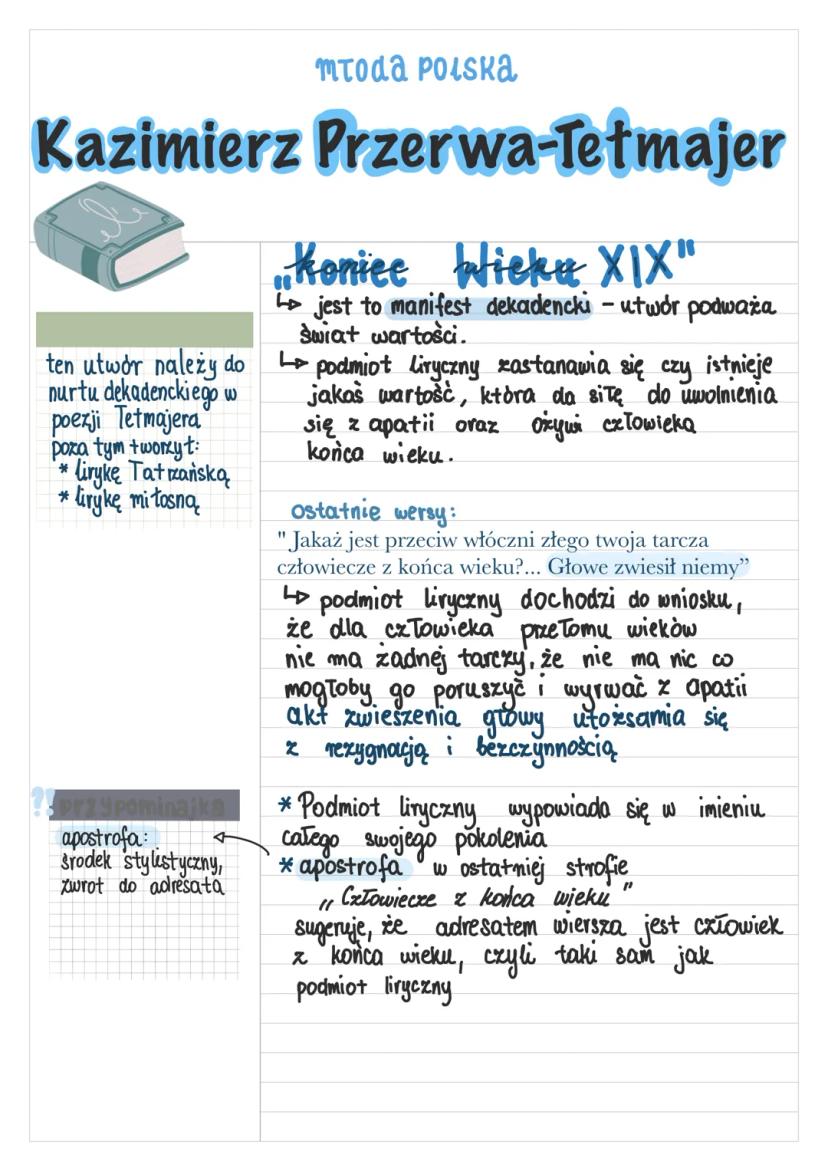 młoda polska
Kazimierz Przerwa-Tetmajer
„koniec wieku XIX"
↳ jest to manifest dekadencki – utwór podważa
świat wartości.
↳ podmiot liryczny zastanawia się czy istnieje
jakaś wartość, która da siłę do uwolnienia
się z apatii oraz ożywi człowieka
końca wieku.
ten utwór należy do
nurtu dekadenckiego w
poezji Tetmajera
poza tym tworzył:
* lirykę Tatrzańską
* lirykę miłosną
ostatnie wersy:
" Jakaż jest przeciw włóczni złego twoja tarcza
człowiecze z końca wieku?... Głowe zwiesił niemy”
↳ podmiot liryczny dochodzi do wniosku,
że dla człowieka przełomu wieków
nie ma żadnej tarczy, że nie ma nic co
mogłoby go poruszyć i wyrwać z apatii
akt zwieszenia głowy utożsamia się
z rezygnacją i bezczynnością
* Podmiot liryczny wypowiada się w imieniu
całego swojego pokolenia
* apostrofa w ostatniej strofie
„Człowiecze z końca wieku”
sugeruje, że adresatem wiersza jest człowiek
z końca wieku, czyli taki sam jak
podmiot liryczny
?! przypominajka
apostrofa:
środek stylistyczny,
zwrot do adresata